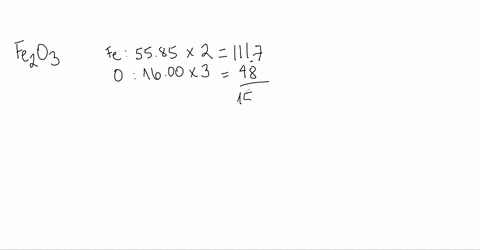 Fe₂O₃ Fe: 55.85 x 2 = 111.7
O: 16.00 x 3 = 48
15